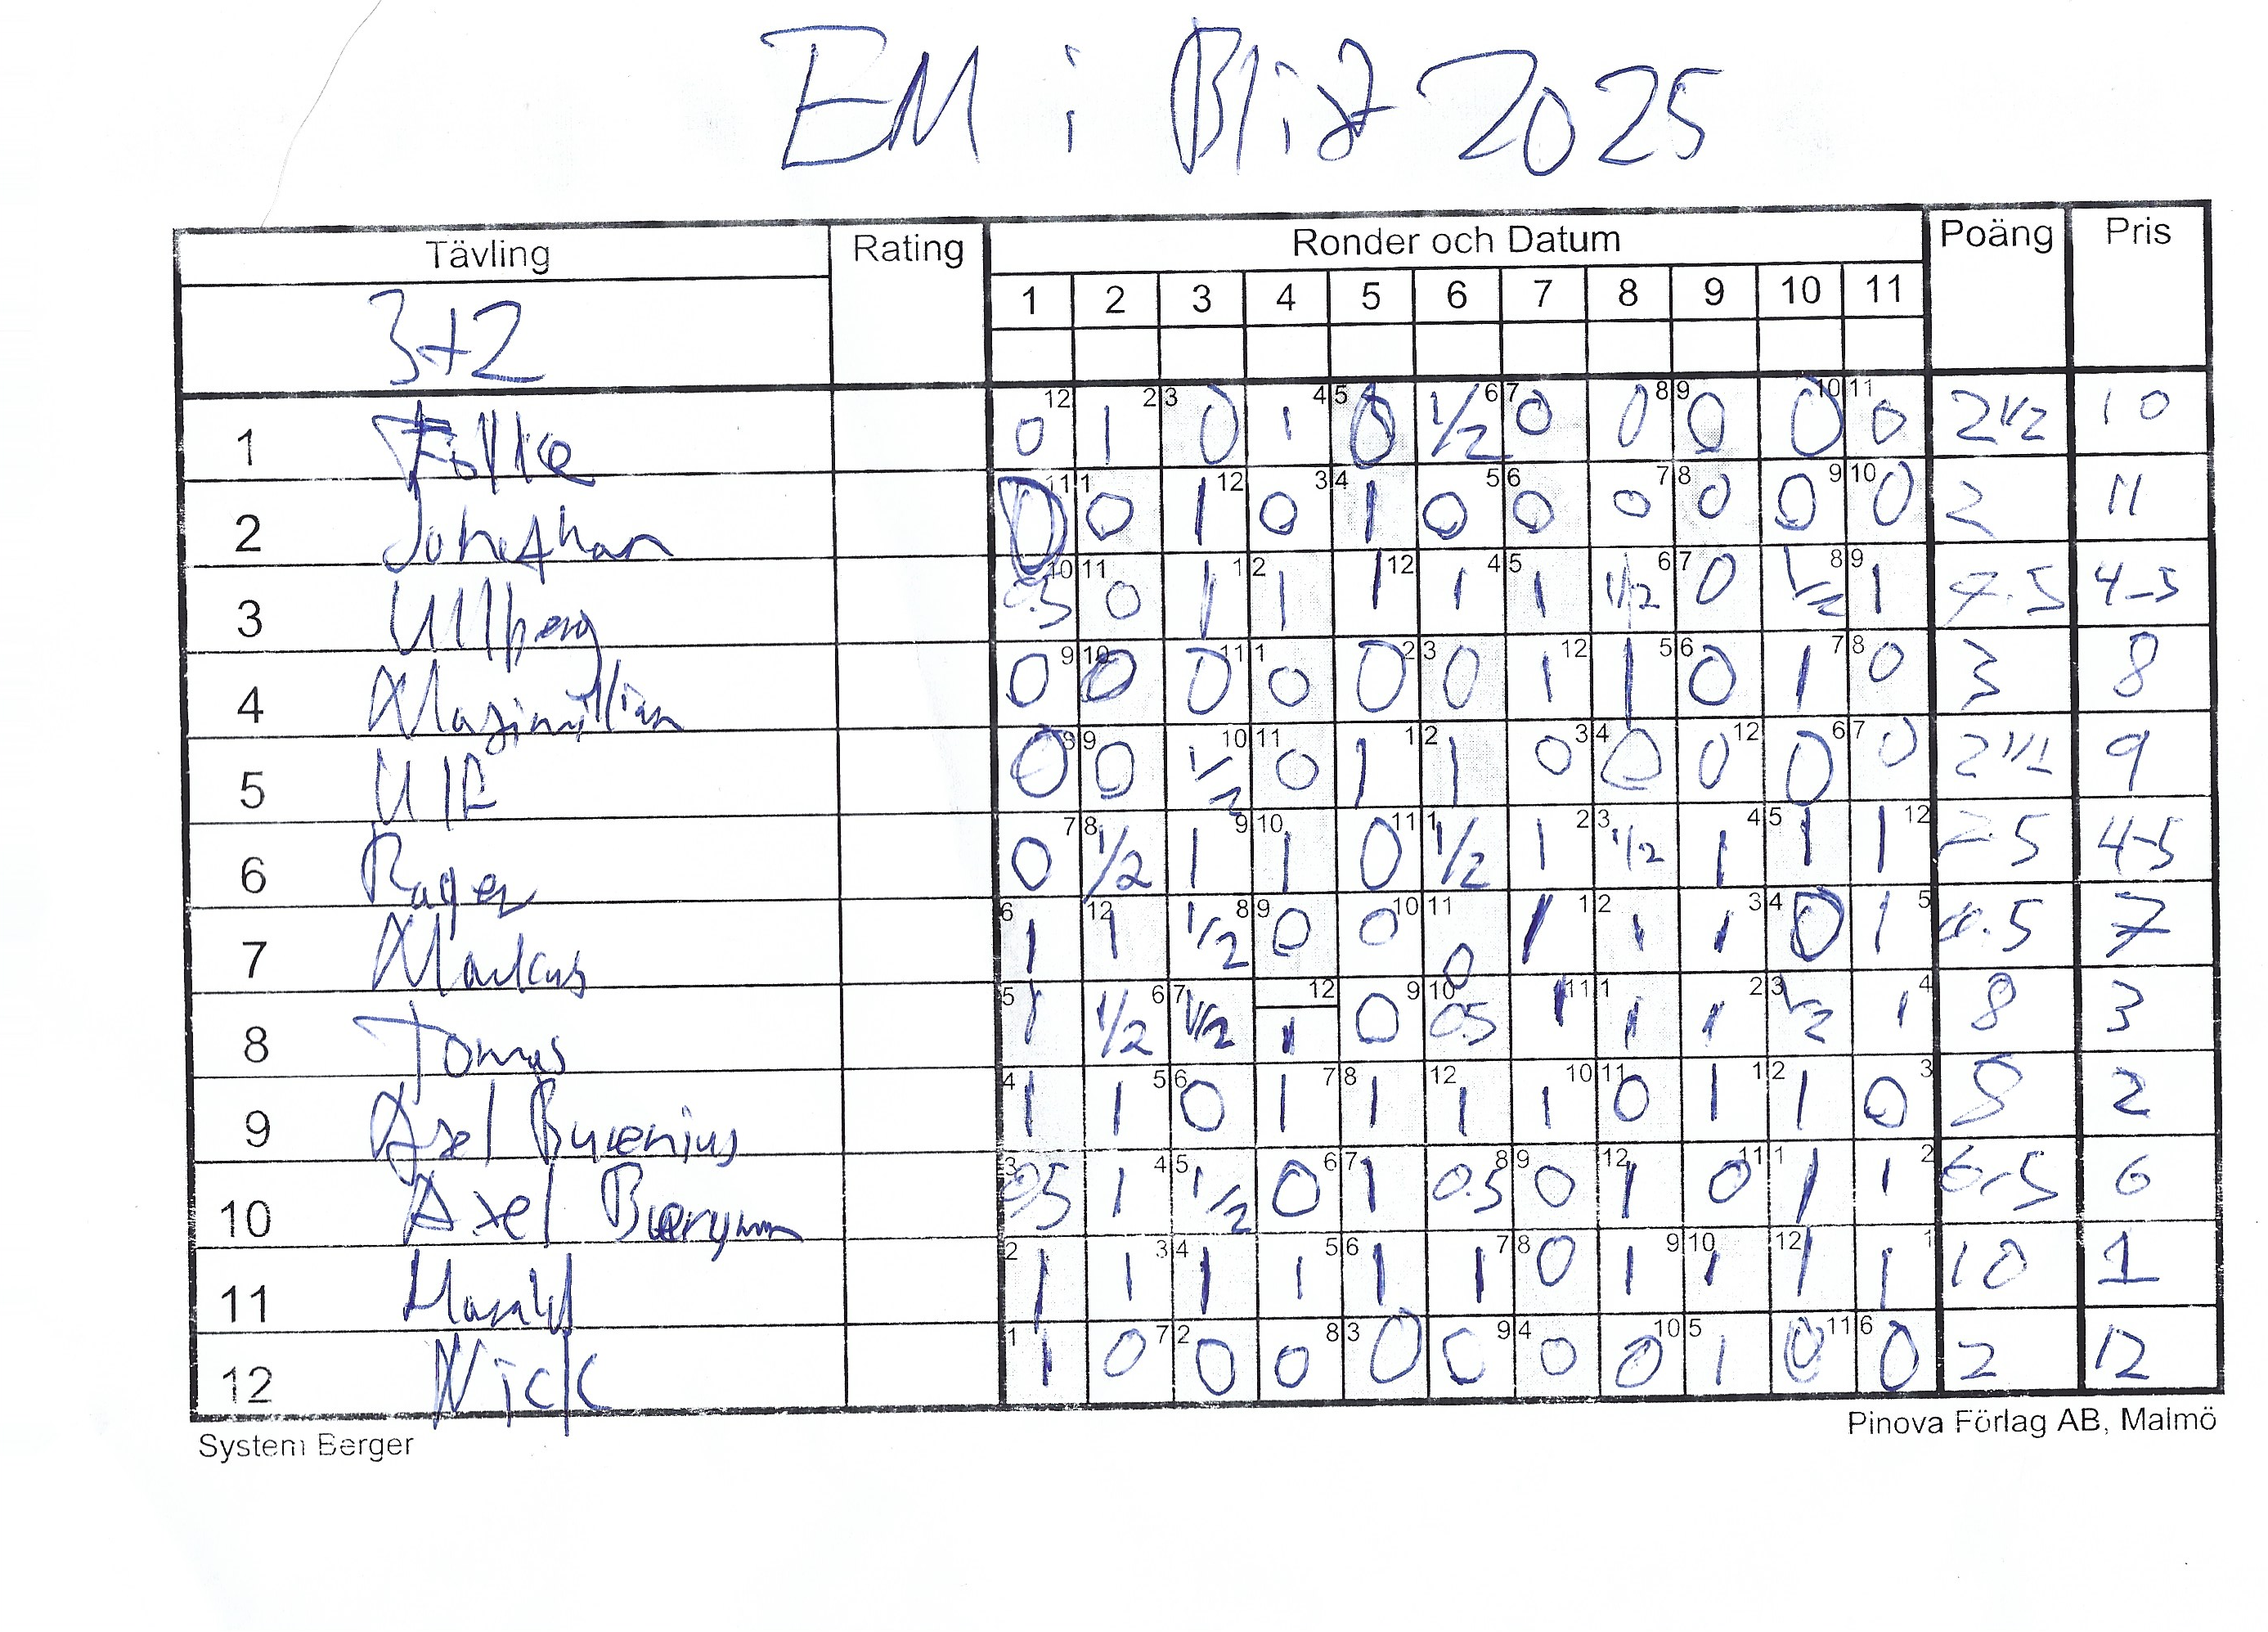 EM i Blixt 2025
Tävling Rating Ronder och Datum Poäng Pris
3+2 1 2 3 4 5 6 7 8 9 10 11
1 Folke 0 12 1 2 3 0 1 4 5 0 1/2 6 7 0 0 8 9 0 0 10 11 0 2 1/2 10
2 Jonathan 0 11 1 0 1 12 0 3 4 1 0 5 6 0 0 7 8 0 0 9 10 0 2 11
3 Ullberg 0.5 10 11 0 1 1 2 1 1 12 1 4 5 1 1/2 6 7 0 1/2 8 9 1 7.5 4-5
4 Maximillian 0 9 10 0 0 11 1 0 0 2 3 0 1 12 1 5 6 0 1 7 8 0 3 8
5 Ulf 0 8 9 0 1/2 10 11 0 1 1 2 1 0 3 4 0 0 12 0 6 7 0 2 1/2 9
6 Roger 0 7 8 1/2 1 9 10 1 0 11 1 1/2 1 2 3 1/2 1 4 5 1 1 12 7.5 4-5
7 Markus 6 1 12 1 1/2 8 9 0 0 10 11 0 1 1 2 1 1 3 4 0 1 5 6.5 7
8 Tomas 5 1 1/2 6 7 1/2 12 1 0 9 10 0.5 1 11 1 1 1 2 3 1/2 1 4 8 3
9 Axel Burenius 4 1 1 5 6 0 1 7 8 1 12 1 1 10 11 0 1 1 2 1 0 3 8 2
10 Axel 3 0.5 1 4 5 1/2 0 6 7 1 0.5 8 9 0 12 1 0 11 1 1 1 2 6.5 6
11 Harald 2 1 1 3 4 1 1 5 6 1 1 7 8 0 1 9 10 1 12 1 1 1 10 1
12 Nick 1 1 0 7 2 0 0 8 3 0 0 9 4 0 0 10 5 1 0 11 6 0 2 12
System Berger Pinova Förlag AB, Malmö